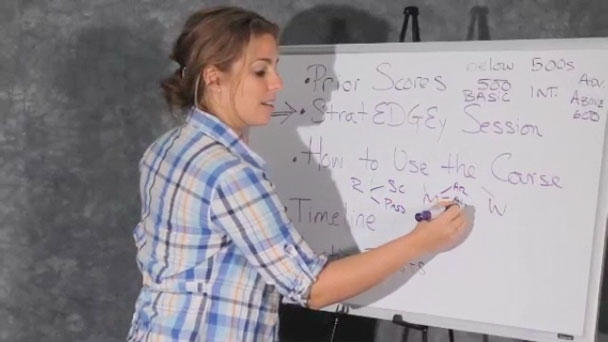 • Prior Scores
Below 500
BASIC
500s
INT.
Adv.
Above 600
→ • StratEDGEy Session
• How to Use the Course
R Sc Pass
M Ar
W
Timeline